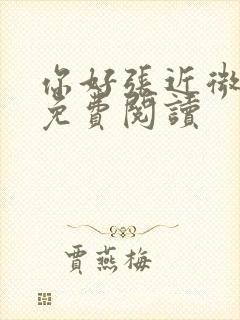 你好張近微
免費閱讀
賈燕梅